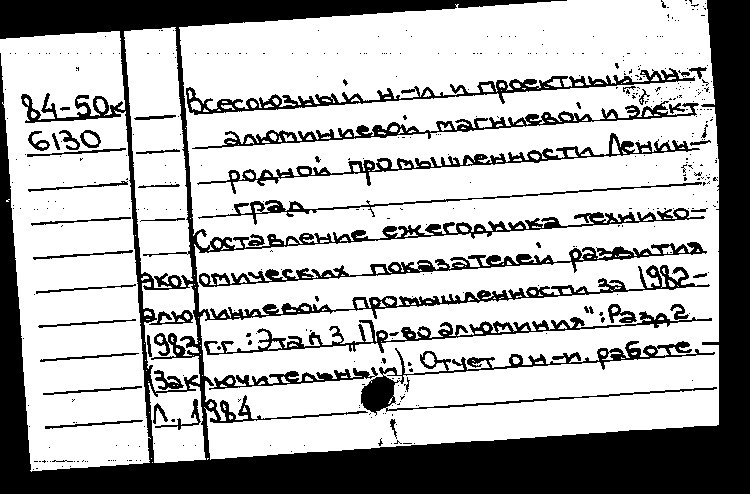 84-50к
6130
Всесоюзный н.-и. и проектный ин-т
алюминиевой, магниевой и элект-
родной промышленности. Ленин-
град.
Составление ежегодника технико-
экономических показателей развития
алюминиевой промышленности за 1982-
1983 г.г.: Этап 3 „Пр-во алюминия": Разд 2.
(Заключительный): Отчет о н.-и. работе. –
Л., 1984.